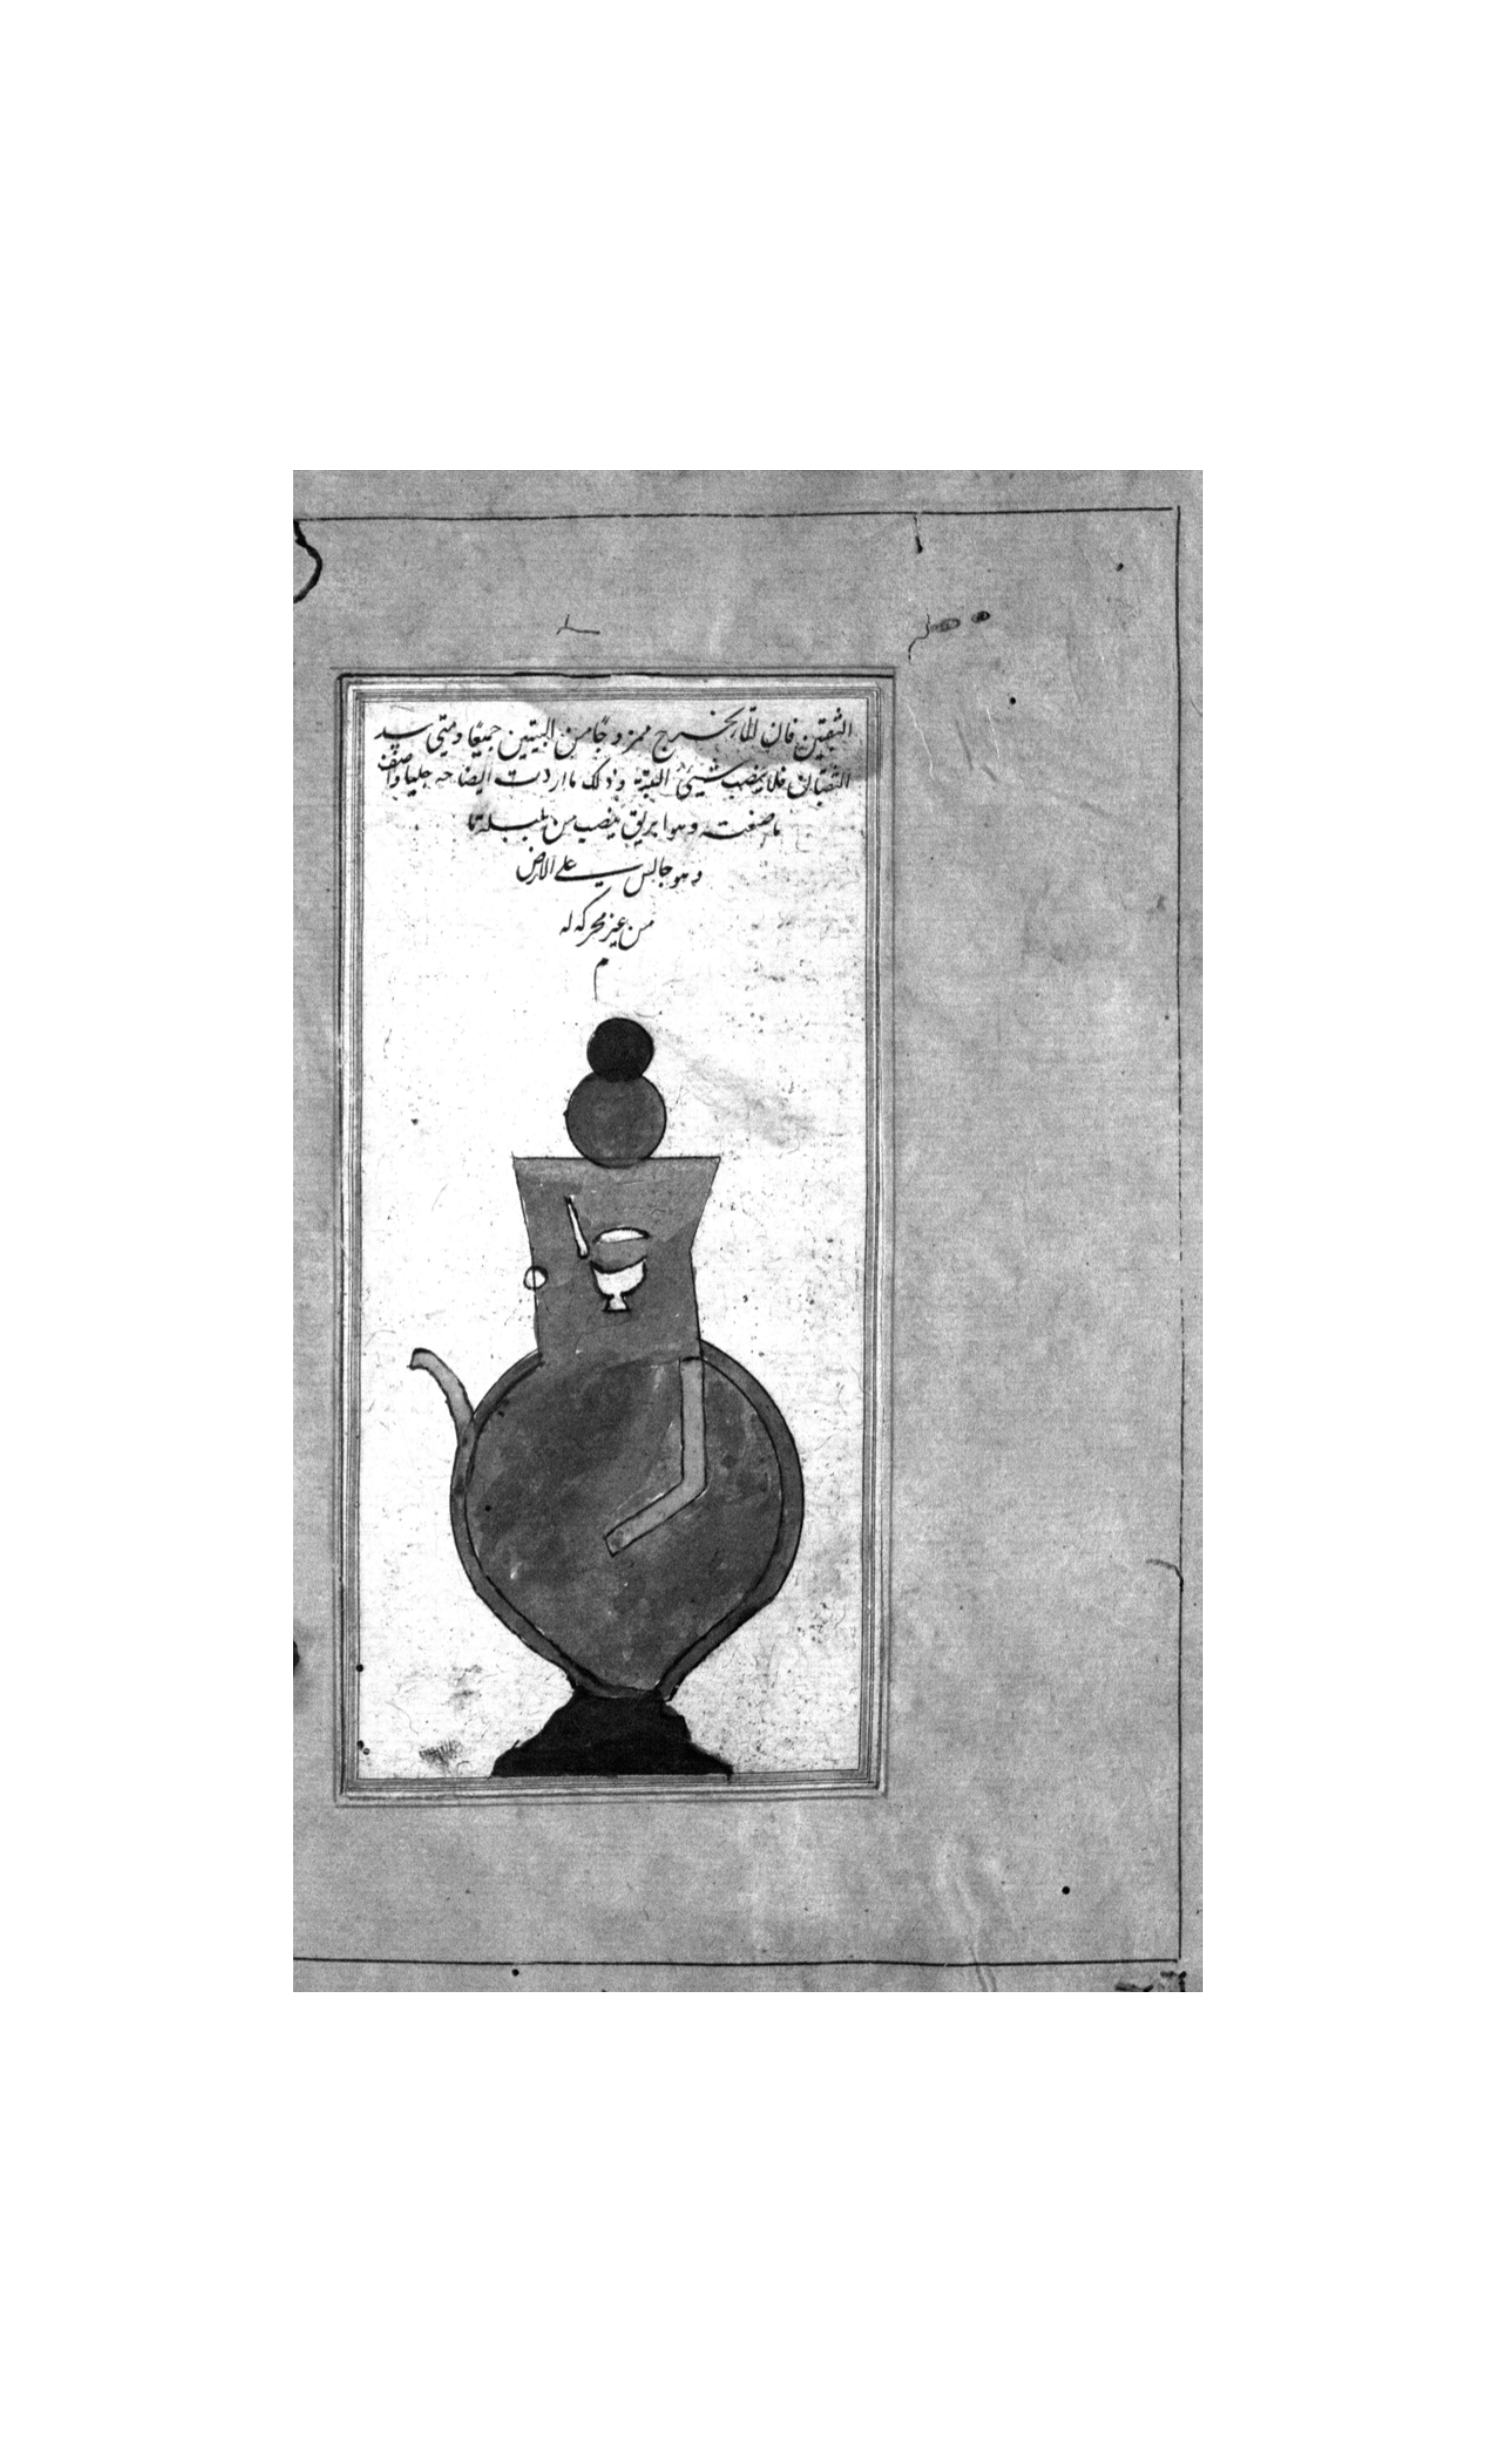 الثقبين فان الماء يخرج ممزوجًا من البيتين جميعًا ومتى سد
الثقبان فلا ينصب شيئ البتة وذلك ما اردت ايضاحه جليا واصف
ما صنعته وهو ابريق ينصب من بلبلة ما
وهو جالس على الارض
من غير محركه له
م